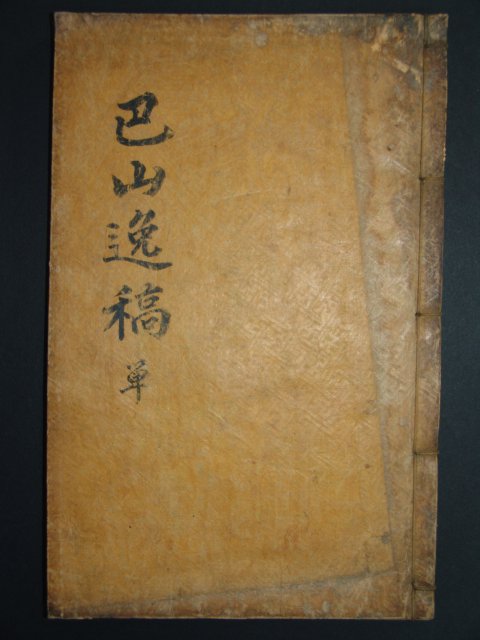 巴山逸稿 単